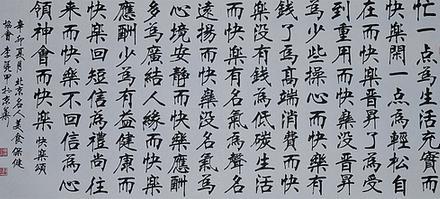 忙一点為生活充實而
快樂閑一点為輕松自
在而快樂晋昇了為受
到重用而快樂没晋昇
為少些操心而快樂有
錢了為高端消費而快
樂没錢為低碳生活
而快樂有名氣為聲名
遠揚而快樂没名氣為
心境安静而快樂應酬
多為廣結人緣而快樂
應酬少為有益健康而
快樂回短信為禮尚往
来而快樂不回信為心
領神會而快樂 快樂頌
辛卯夏月北京名人美食保健
協會李英甲於京華